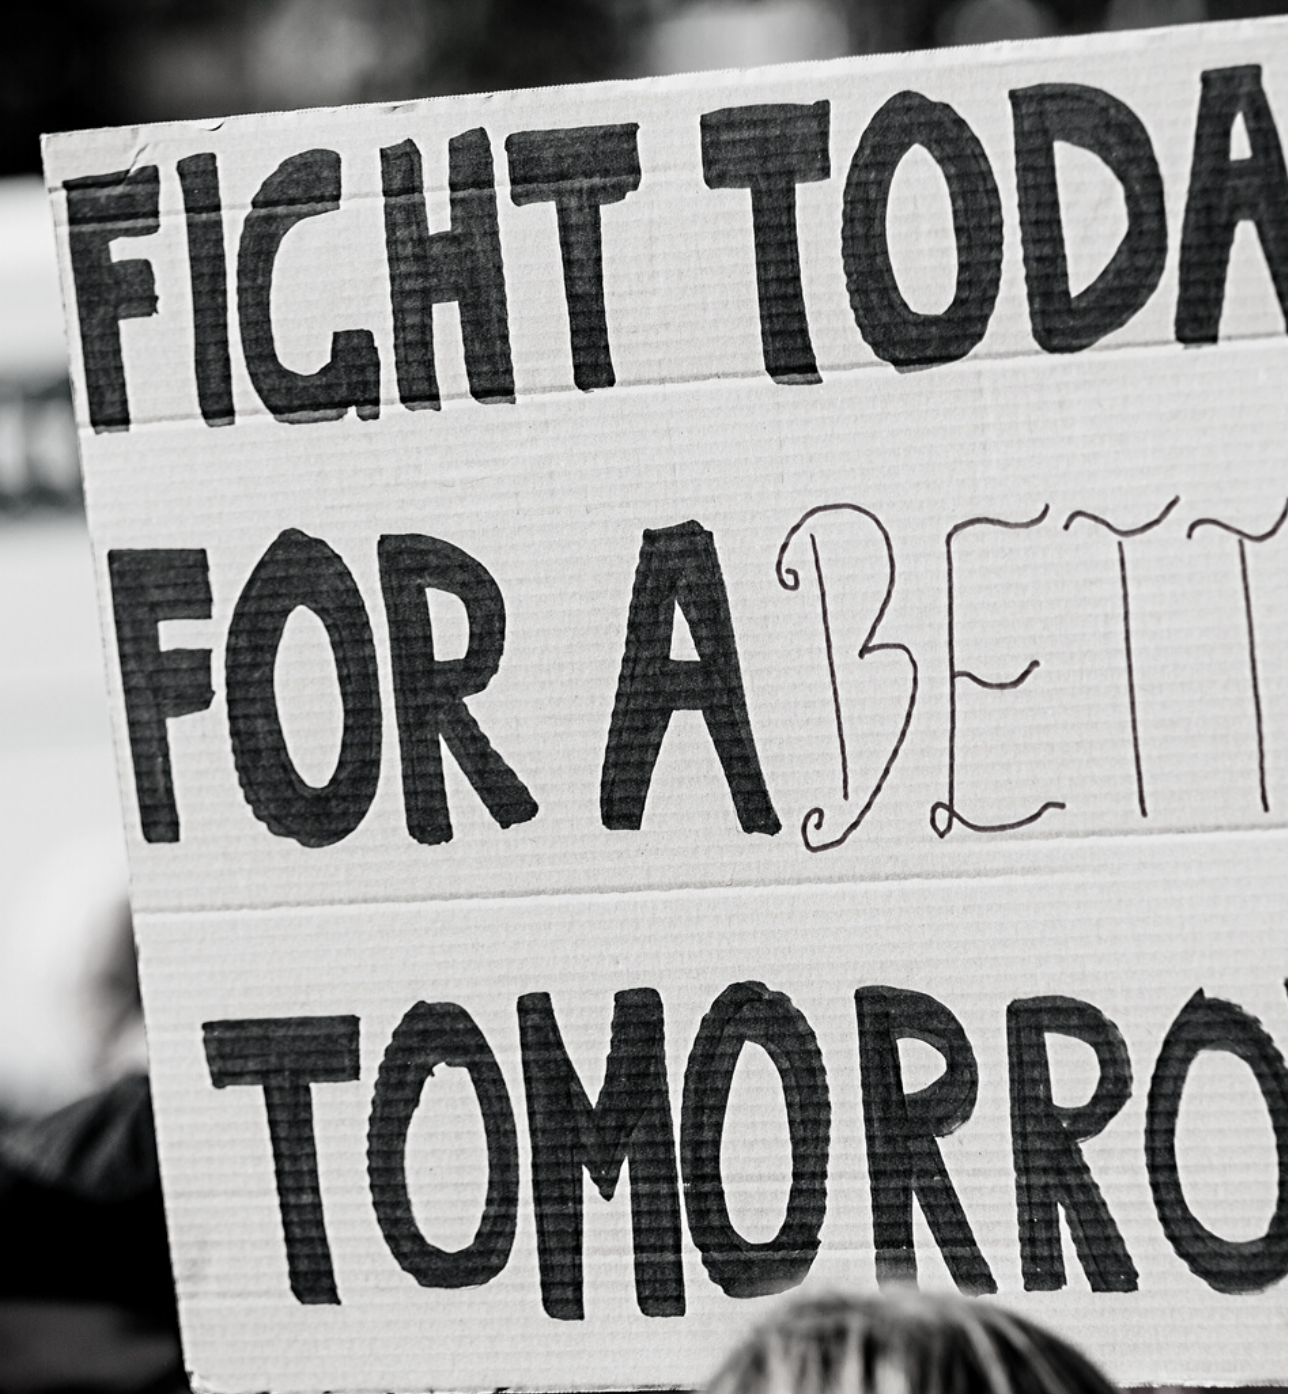 FIGHT TODA
FOR A BETT
TOMORRO